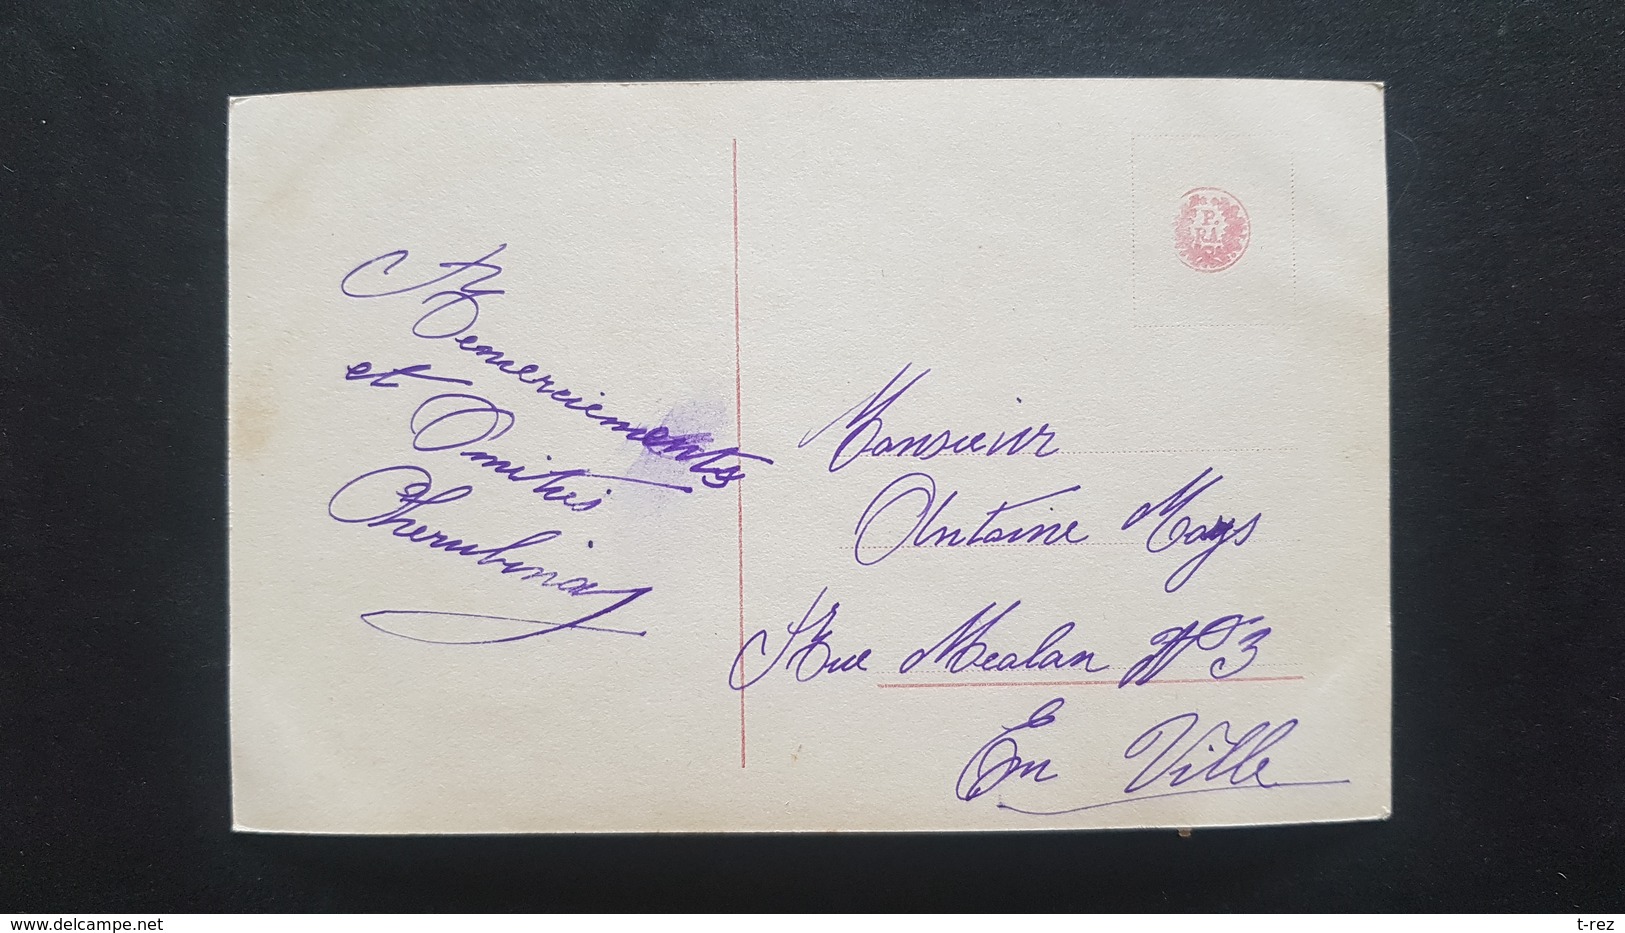 Remerciements
et Amitiés
Cherubina
P.
RA
Monsieur
Antoine Mays
Rue Mealan N° 3
En Ville
delcampe.net
t-rez